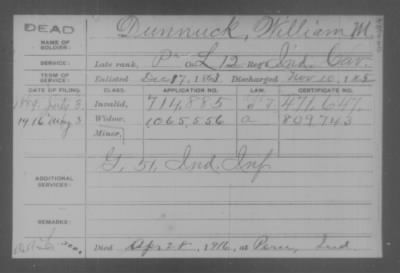 DEAD
Dunnuck, William M.
NAME OF SOLDIER:
SERVICE: Late rank, Pri Co. L, 12 Reg't Ind. Cav.
TERM OF SERVICE: Enlisted Dec 17, 1863 Discharged Nov 10, 1865
DATE OF FILING. CLASS. APPLICATION NO. LAW. CERTIFICATE NO.
July 3, Invalid, 714,885 471,647
1916 Aug 3 Widow, 1065,556 a 809743
Minor,
ADDITIONAL SERVICES: G, 51, Ind. Inf
REMARKS:
Died Apr 28, 1916, at Peru, Ind.